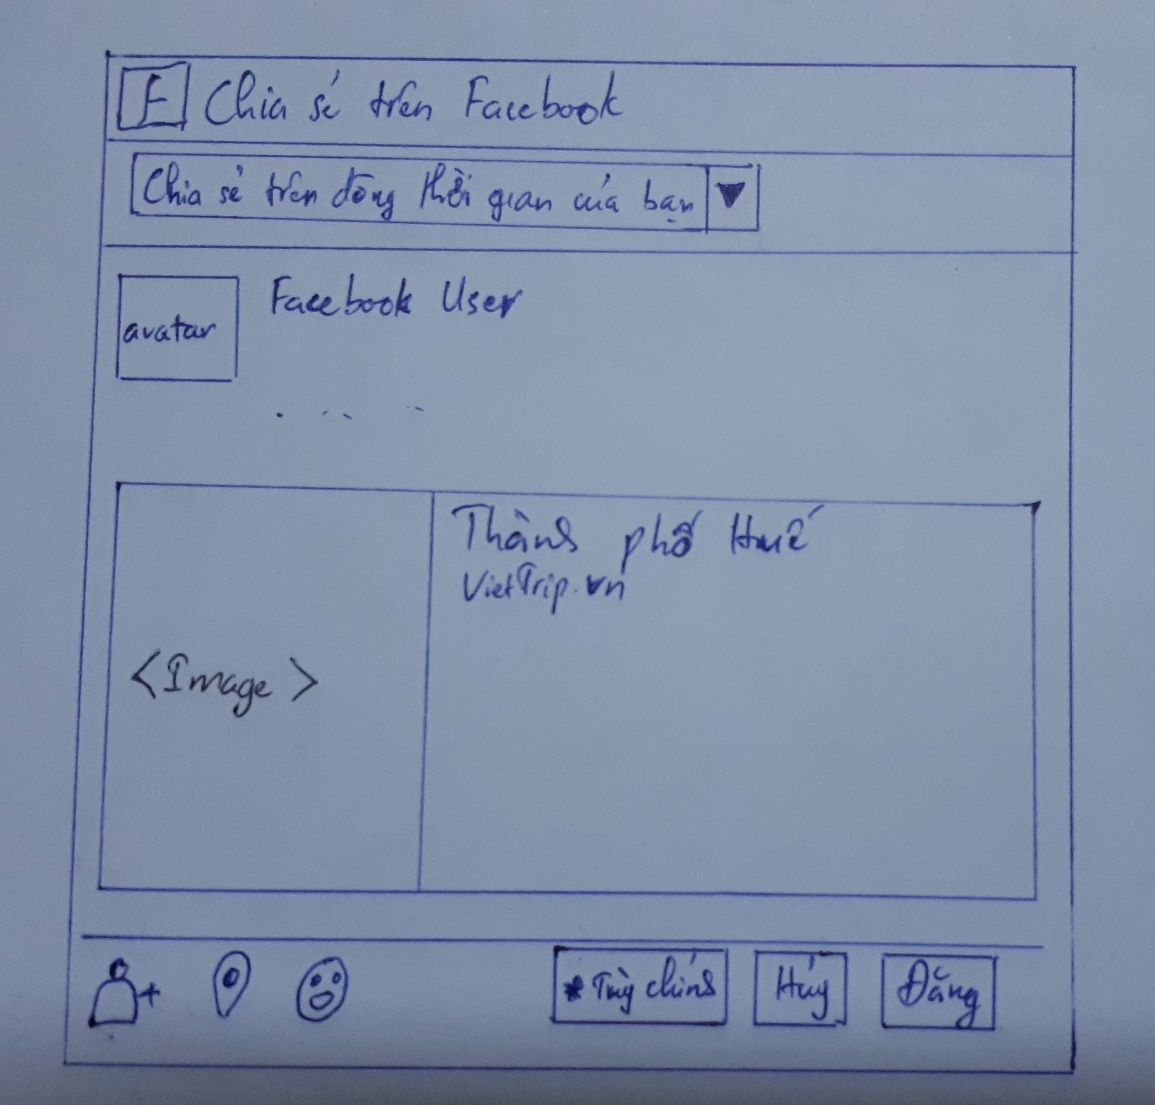 F Chia sẻ trên Facebook
Chia sẻ trên dòng thời gian của bạn
avatar
Facebook User
Thành phố Huế
VietTrip.vn
<Image>
* Tùy chỉnh
Hủy
Đăng